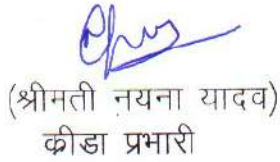 (श्रीमती नयना यादव)
क्रीडा प्रभारी